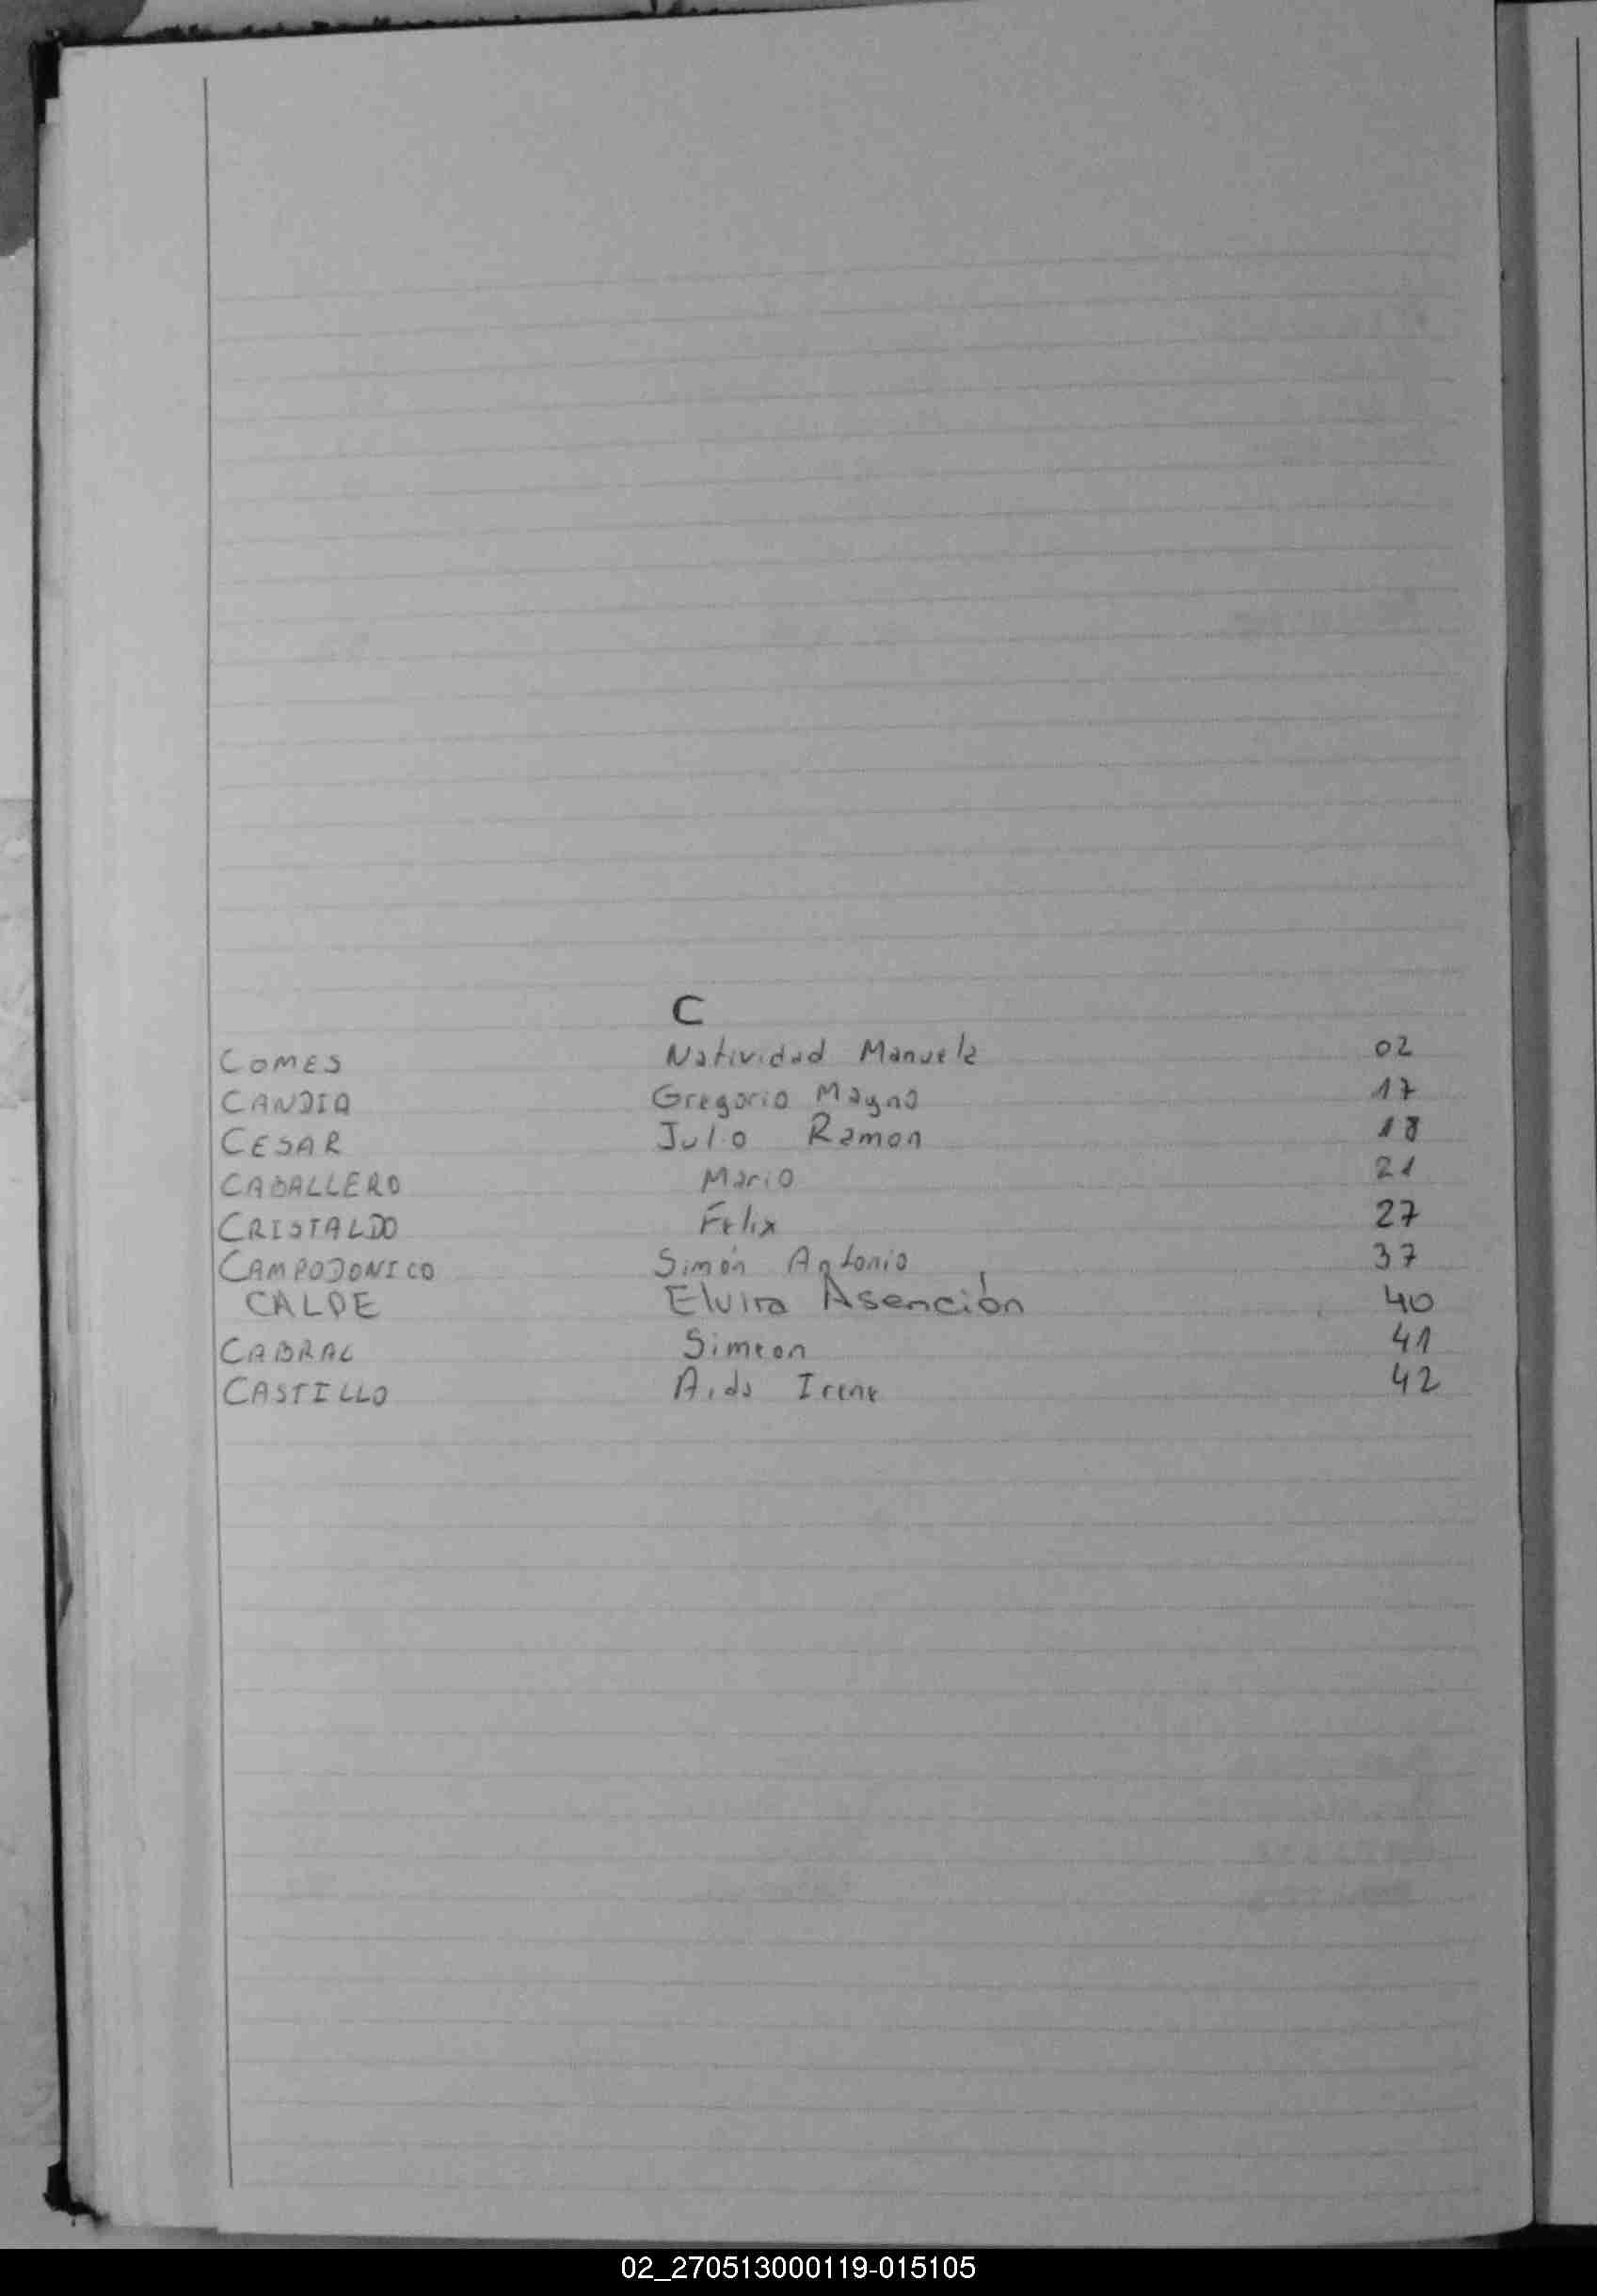 C
COMES Natividad Manuela 02
CANDIA Gregorio Magno 17
CESAR Julio Ramon 18
CABALLERO Mario 21
CRISTALDO Felix 27
CAMPODONICO Simón Antonio 37
CALDE Elvira Asención 40
CABRAL Simeon 41
CASTILLO Aida Irene 42
02_270513000119-015105